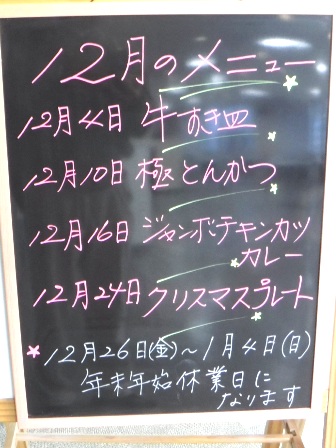 12月のメニュー
12月4日 牛すき皿
12月10日 極とんかつ
12月16日 ジャンボチキンカツ
カレー
12月24日 クリスマスプレート
12月26日(金)~1月4日(日)
年末年始休業日に
なります